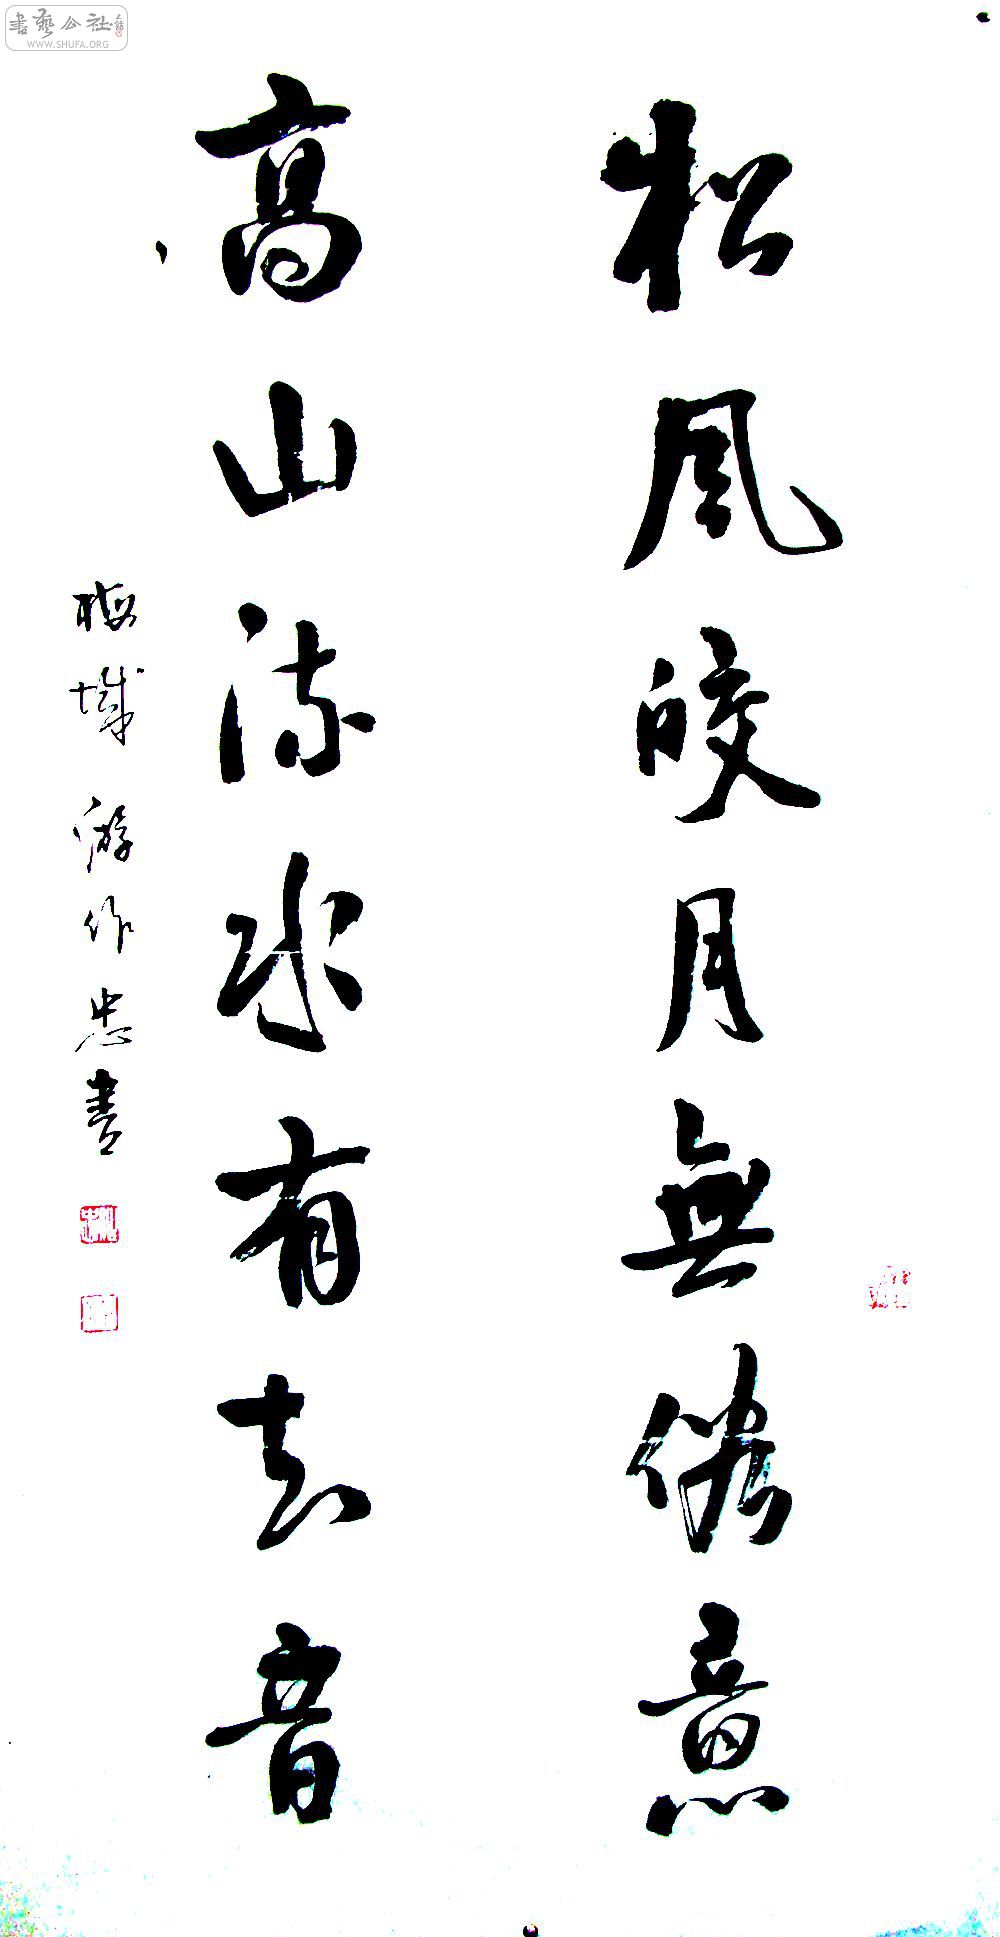 書藝公社
WWW.SHUFA.ORG
松風皎月無俗意
高山流水有知音
梅城游作忠書